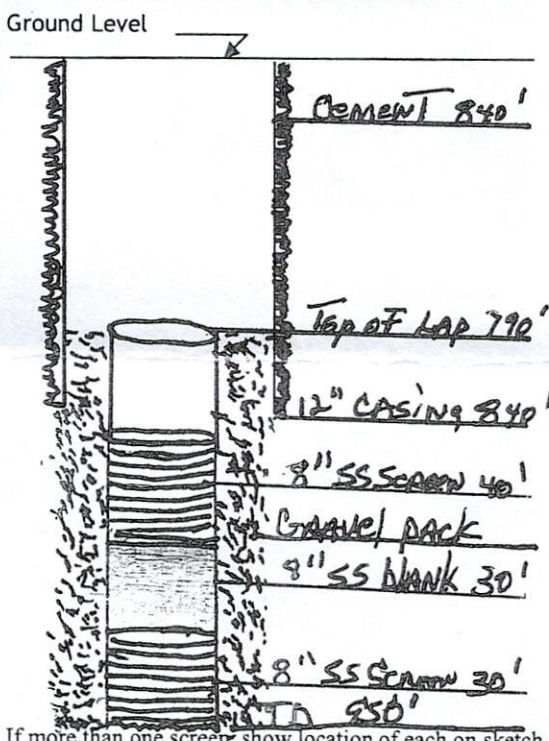 Ground Level
Cement 840'
Top of Lap 790'
12" Casing 840'
8" SS Screen 40'
Gravel pack
8" SS blank 30'
8" SS Screen 30'
TD 950'
If more than one screen, show location of each on sketch